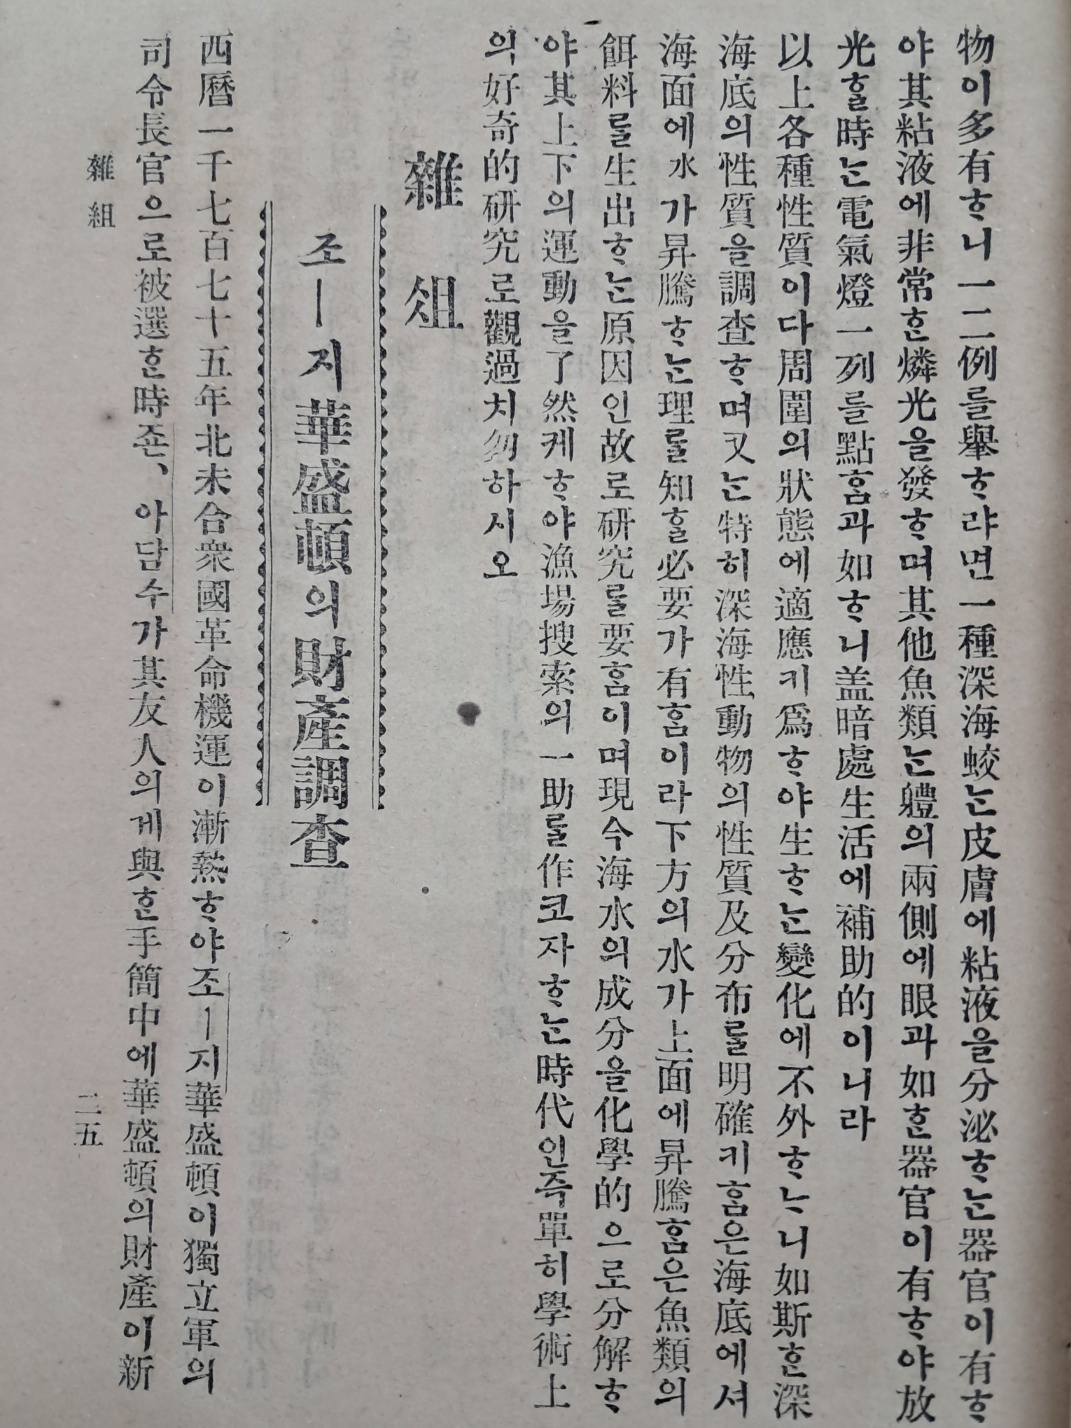 物이多有ᄒᆞ니一二例를擧ᄒᆞ랴면一種深海蛟ᄂᆞᆫ皮膚에粘液을分泌ᄒᆞᄂᆞᆫ器官이有ᄒᆞ
야其粘液에非常ᄒᆞᆫ燐光을發ᄒᆞ며其他魚類ᄂᆞᆫ軆의兩側에眼과如ᄒᆞᆫ器官이有ᄒᆞ야放
光ᄒᆞᆯ時ᄂᆞᆫ電氣燈一列를點ᄒᆞᆷ과如ᄒᆞ니盖暗處生活에補助的이니라
以上各種性質이다周圍의狀態에適應키爲ᄒᆞ야生ᄒᆞᄂᆞᆫ變化에不外ᄒᆞᄂᆞ니如斯ᄒᆞᆫ深
海底의性質을調查ᄒᆞ며又ᄂᆞᆫ特히深海性動物의性質及分布ᄅᆞᆯ明確키ᄒᆞᆷ은海底에셔
海面에水가昇騰ᄒᆞᄂᆞᆫ理ᄅᆞᆯ知ᄒᆞᆯ必要가有ᄒᆞᆷ이라下方의水가上面에昇騰ᄒᆞᆷ은魚類의
餌料ᄅᆞᆯ生出ᄒᆞᄂᆞᆫ原因인故로硏究ᄅᆞᆯ要ᄒᆞᆷ이며現今海水의成分을化學的으로分解ᄒᆞ
야其上下의運動을了然케ᄒᆞ야漁場搜索의一助ᄅᆞᆯ作코자ᄒᆞᄂᆞᆫ時代인즉單히學術上
의好奇的硏究로觀過치勿하시오
雜俎
조ㅣ지華盛頓의財產調查
西曆一千七百七十五年北未合衆國革命機運이漸熱ᄒᆞ야조ㅣ지華盛頓이獨立軍의
司令長官으로被選ᄒᆞᆫ時죤、아담수가其友人의게與ᄒᆞᆫ手簡中에華盛頓의財產이新
雜組
二五